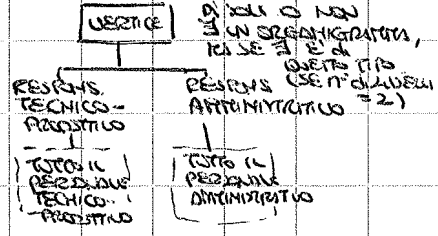 VERTICE
O NON
∃ UN ORGANIGRAMMA,
MA SE ∃ È di
QUESTO TIPO
(SE n° di LIVELLI
= 2)
RESPONS.
TECNICO-
PRODUTTIVO
RESPONS
AMMINISTRATIVO
TUTTO IL
PERSONALE
TECNICO-
PRODUTTIVO
TUTTO IL
PERSONALE
AMMINISTRATIVO